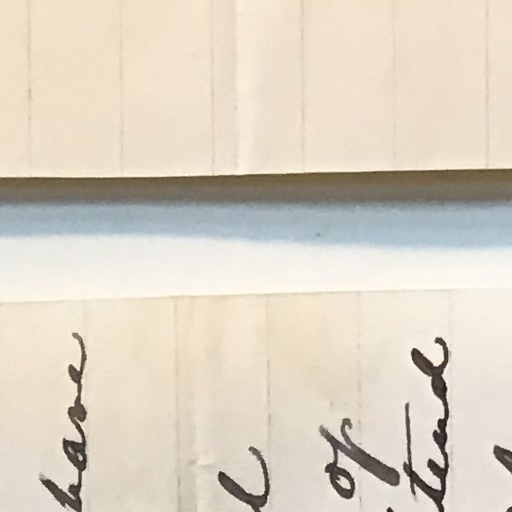 have
l
of
tend